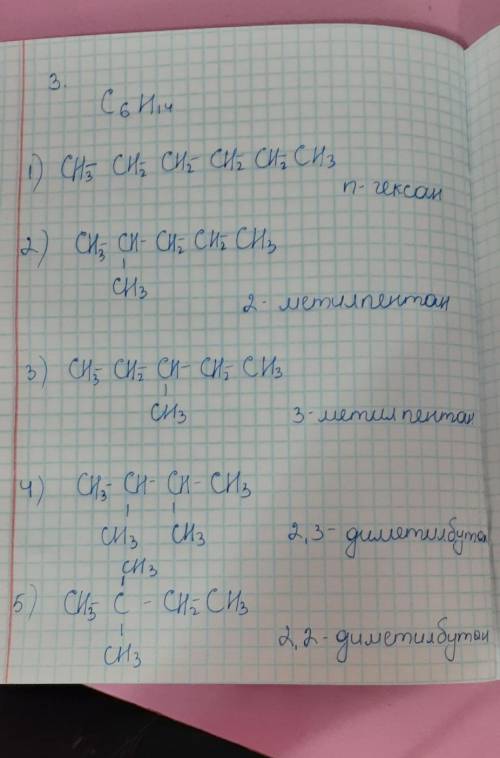 3.
C₆H₁₄
1) CH₃- CH₂- CH₂- CH₂- CH₂- CH₃
n-гексан
2) CH₃- CH- CH₂- CH₂- CH₃
CH₃
2-метилпентан
3) CH₃- CH₂- CH- CH₂- CH₃
CH₃
3-метилпентан
4) CH₃- CH- CH- CH₃
CH₃ CH₃
2,3-диметилбутан
CH₃
5) CH₃- C - CH₂- CH₃
CH₃
2,2-диметилбутан